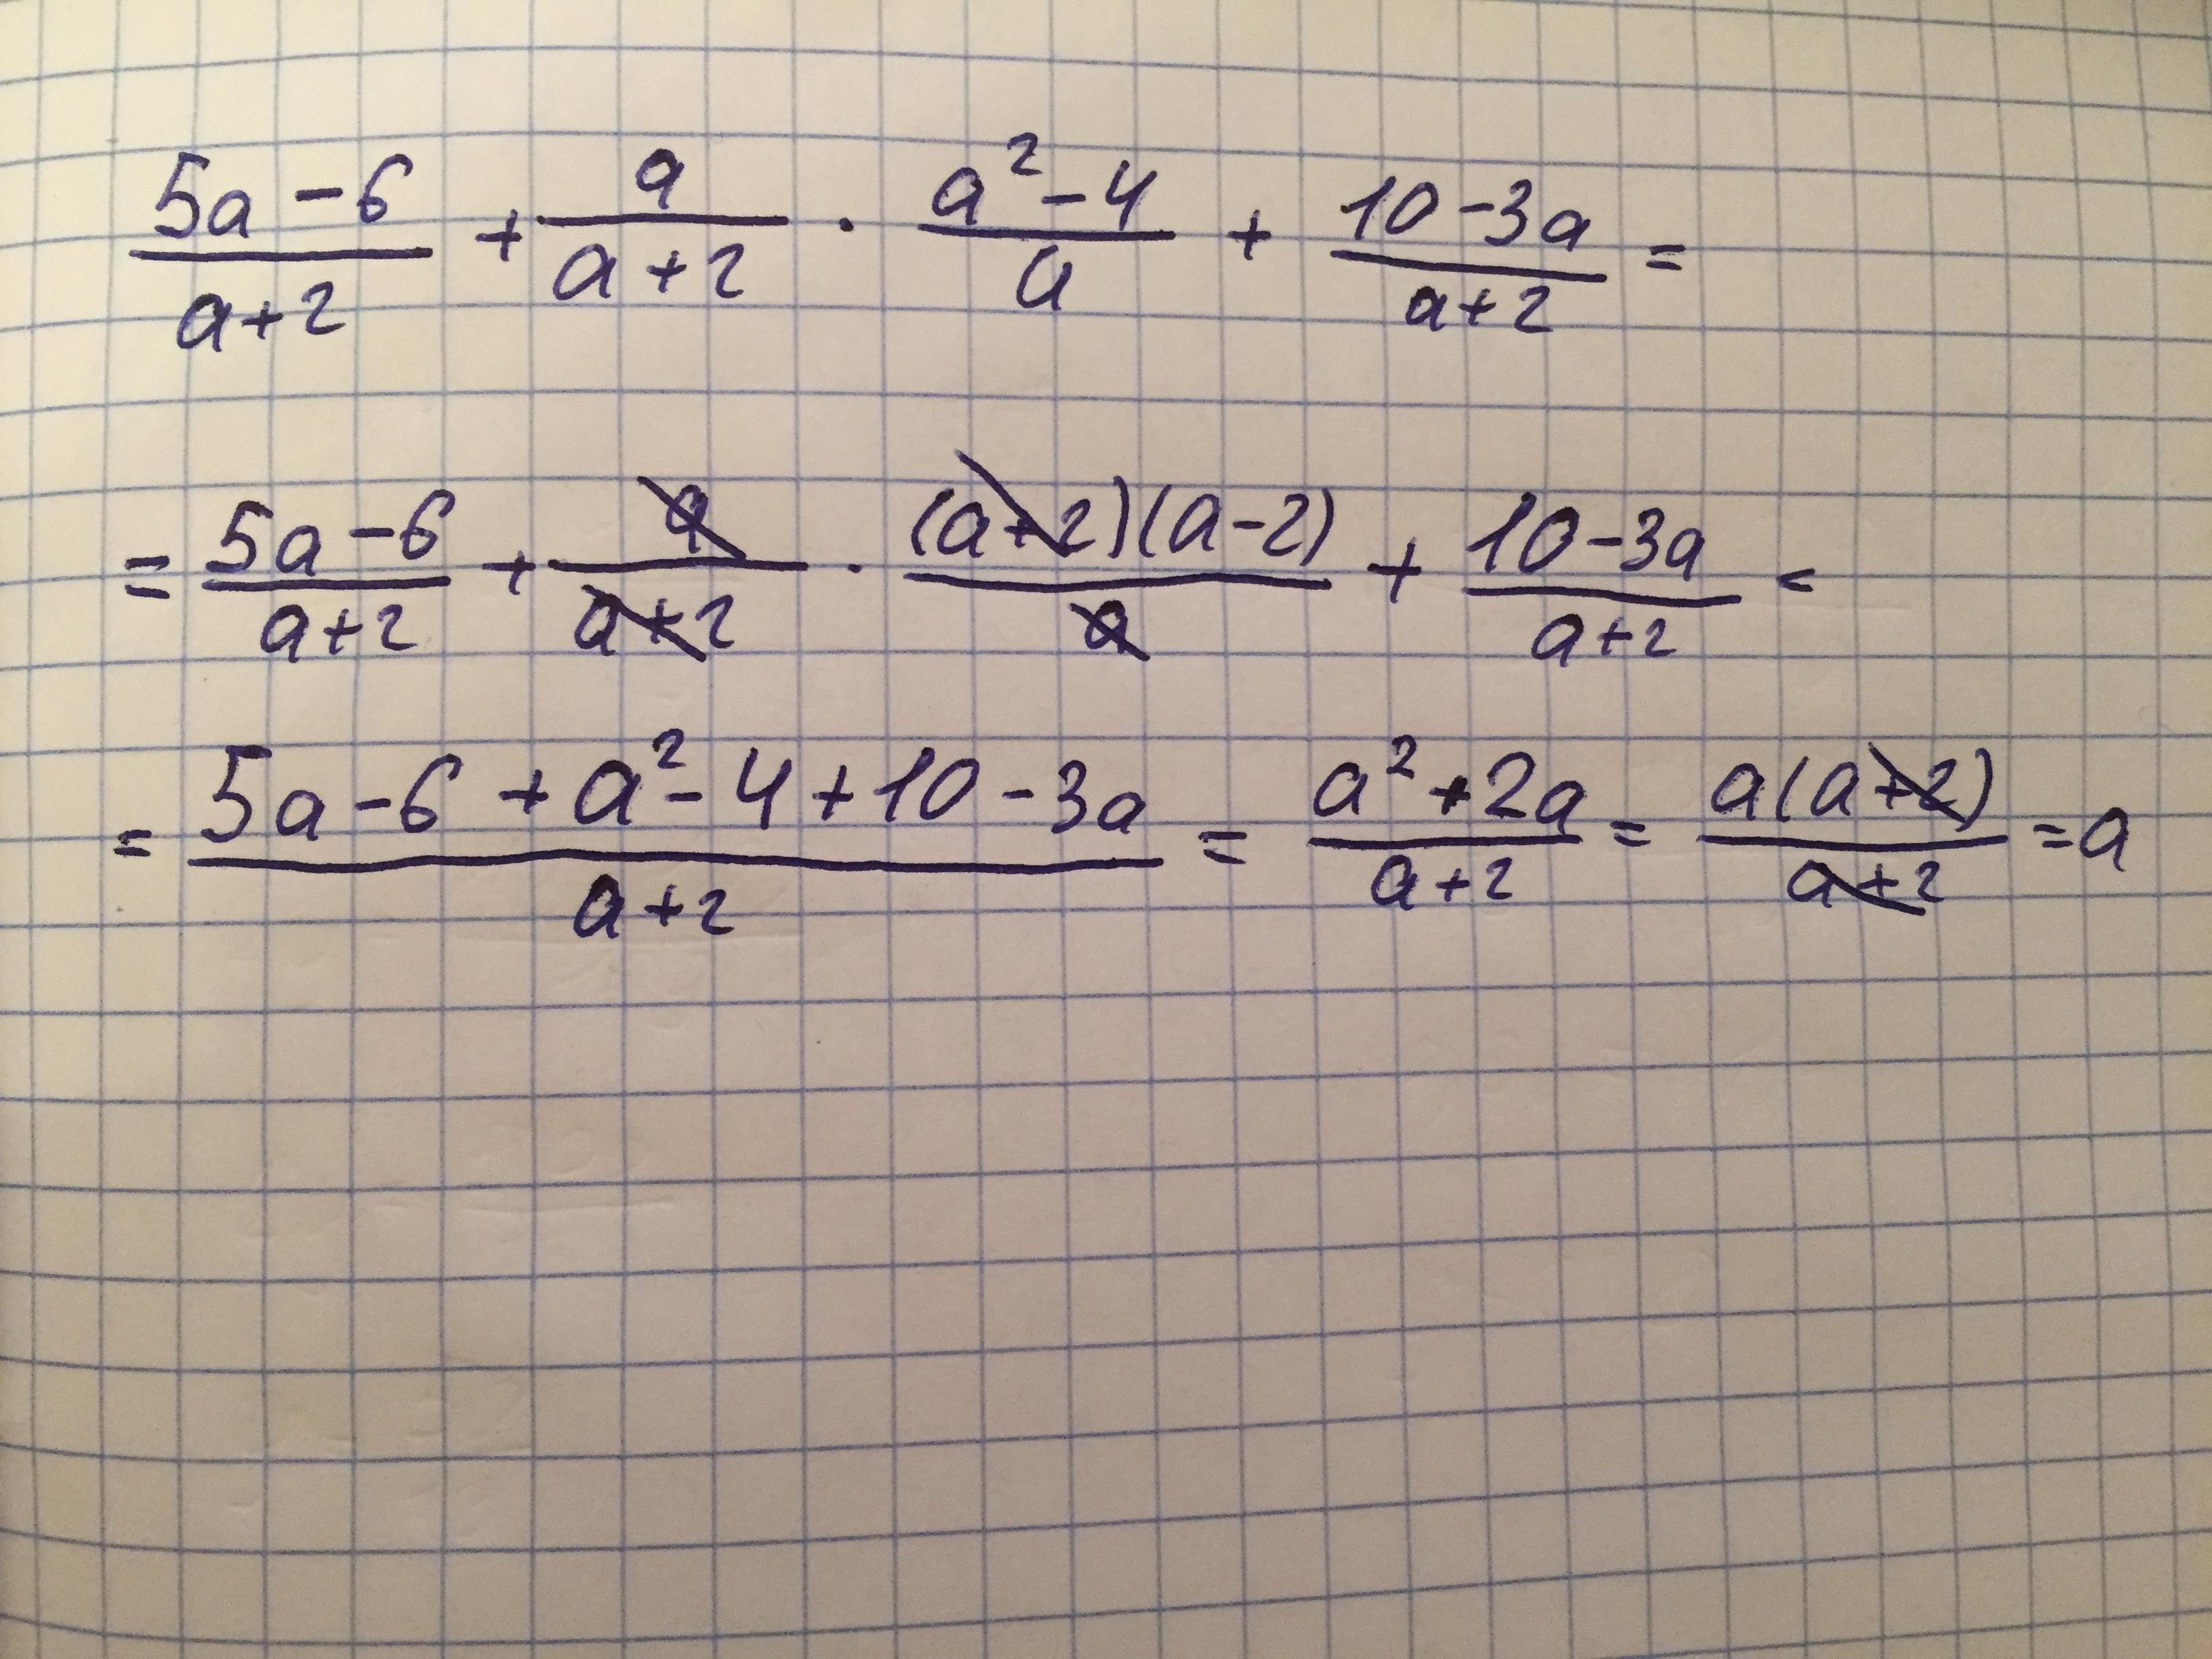 (5a-6)/(a+2) + a/(a+2) · (a²-4)/a + (10-3a)/(a+2) =
= (5a-6)/(a+2) + a/(a+2) · ((a+2)(a-2))/a + (10-3a)/(a+2) =
= (5a-6+a²-4+10-3a)/(a+2) = (a²+2a)/(a+2) = (a(a+2))/(a+2) = a